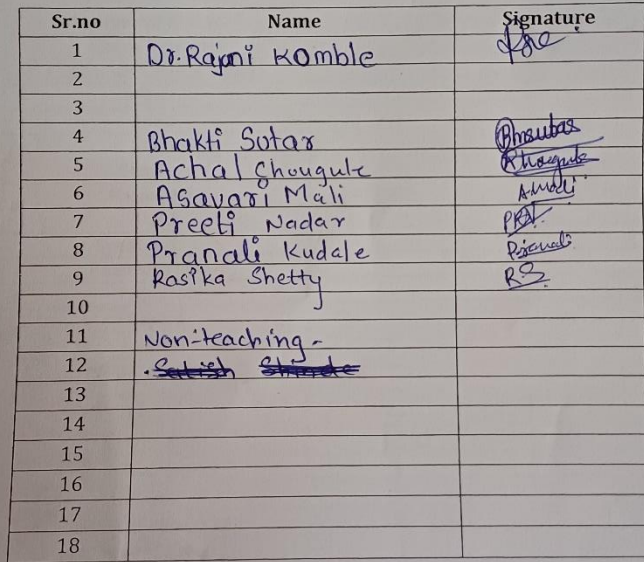 Sr.no Name Signature
1 Dr. Rajani Komble
2
3
4 Bhakti Sutar Bmsutar
5 Achal Chougule Chougule
6 Asavari Mali A.Mali
7 Preeti Nadar PRN
8 Pranali Kudale Pranali
9 Rasika Shetty RS
10
11 Non-teaching -
12 . Satish Shinde
13
14
15
16
17
18